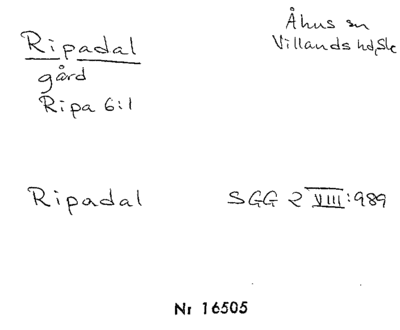 Ripadal
gård
Ripa 6:1
Åhus sn
Villands hd, Sk
Ripadal
SGG 2 VIII:989
Nr 16505